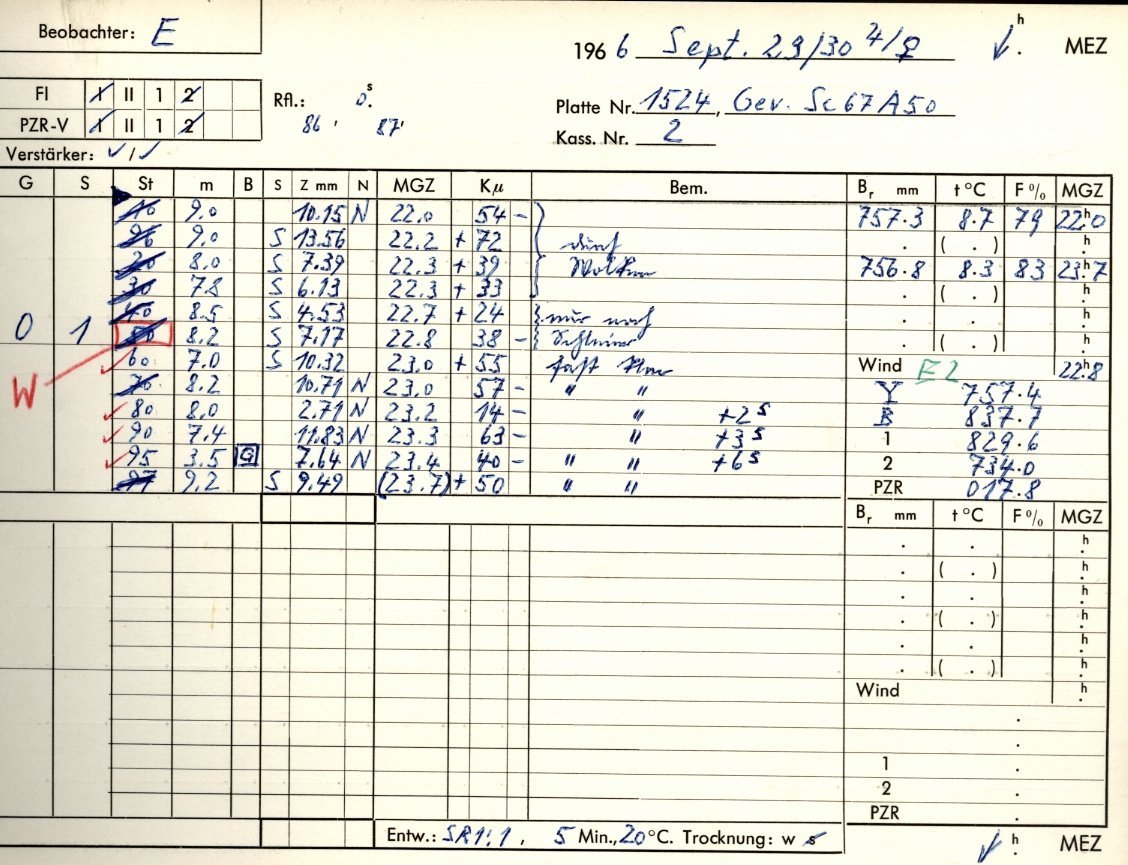 Beobachter: E
1966 Sept. 29/30 4/♀ h. MEZ
FI I II 1 2
Rfl.: 0s.
PZR-V I II 1 2
86, 87,
Platte Nr. 1524, Gev. Sc67A50
Kass. Nr. 2
Verstärker: ✓/✓
G S St m B S Z mm N MGZ Kμ Bem.
10 9.0 10.15 N 22.0 54 -
96 9.0 S 13.56 22.2 + 72 durch
20 8.0 S 7.39 22.3 + 39 Wolken
30 7.8 S 6.13 22.3 + 33
40 8.5 S 4.53 22.7 + 24 nur noch
0 1 50 8.2 S 7.17 22.8 38 - Schleier
60 7.0 S 10.32 23.0 + 55 fast klar
W 70 8.2 10.71 N 23.0 57 - " "
80 8.0 2.71 N 23.2 14 - " +2s
90 7.4 11.83 N 23.3 63 - " +3s
95 3.5 G 7.64 N 23.4 40 - " " +6s
97 9.2 S 9.49 (23.7) + 50 " "
Br mm t°C F% MGZ
757.3 8.7 79 22h0
. ( . ) h.
756.8 8.3 83 23h7
. ( . ) h.
. . h.
. ( . ) h.
Wind E2 22h8
Y 757.4
B 837.7
1 829.6
2 734.0
PZR 017.8
Br mm t°C F% MGZ
. . h.
. ( . ) h.
. . h.
. ( . ) h.
. . h.
. ( . ) h.
Wind h.
.
.
1 .
2 .
PZR .
Entw.: SR1:1, 5 Min., 20°C. Trocknung: w s
h. MEZ